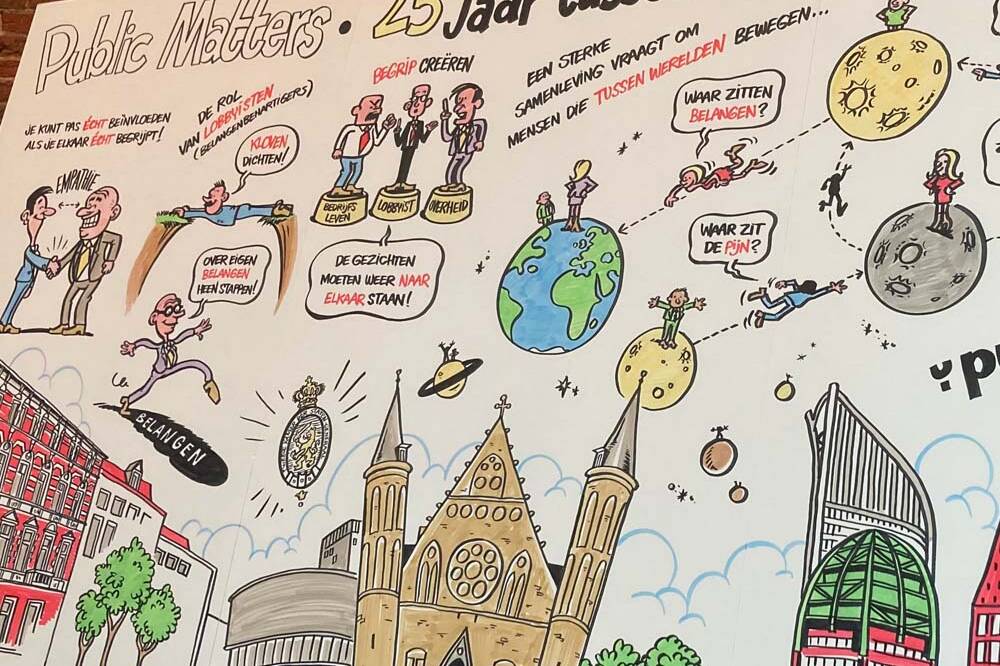 Public Matters • 25 Jaar
JE KUNT PAS ÉCHT BEÏNVLOEDEN
ALS JE ELKAAR ÉCHT BEGRIJPT!
EMPATHIE
DE ROL
VAN LOBBYISTEN
(BELANGENBEHARTIGERS)
KLOVEN
DICHTEN!
OVER EIGEN
BELANGEN
HEEN STAPPEN!
BELANGEN
BEGRIP CREËREN
BEDRIJFS
LEVEN
LOBBYIST
OVERHEID
DE GEZICHTEN
MOETEN WEER NAAR
ELKAAR STAAN!
EEN STERKE
SAMENLEVING VRAAGT OM
MENSEN DIE TUSSEN WERELDEN BEWEGEN...
WAAR ZITTEN
BELANGEN?
WAAR ZIT
DE PIJN?